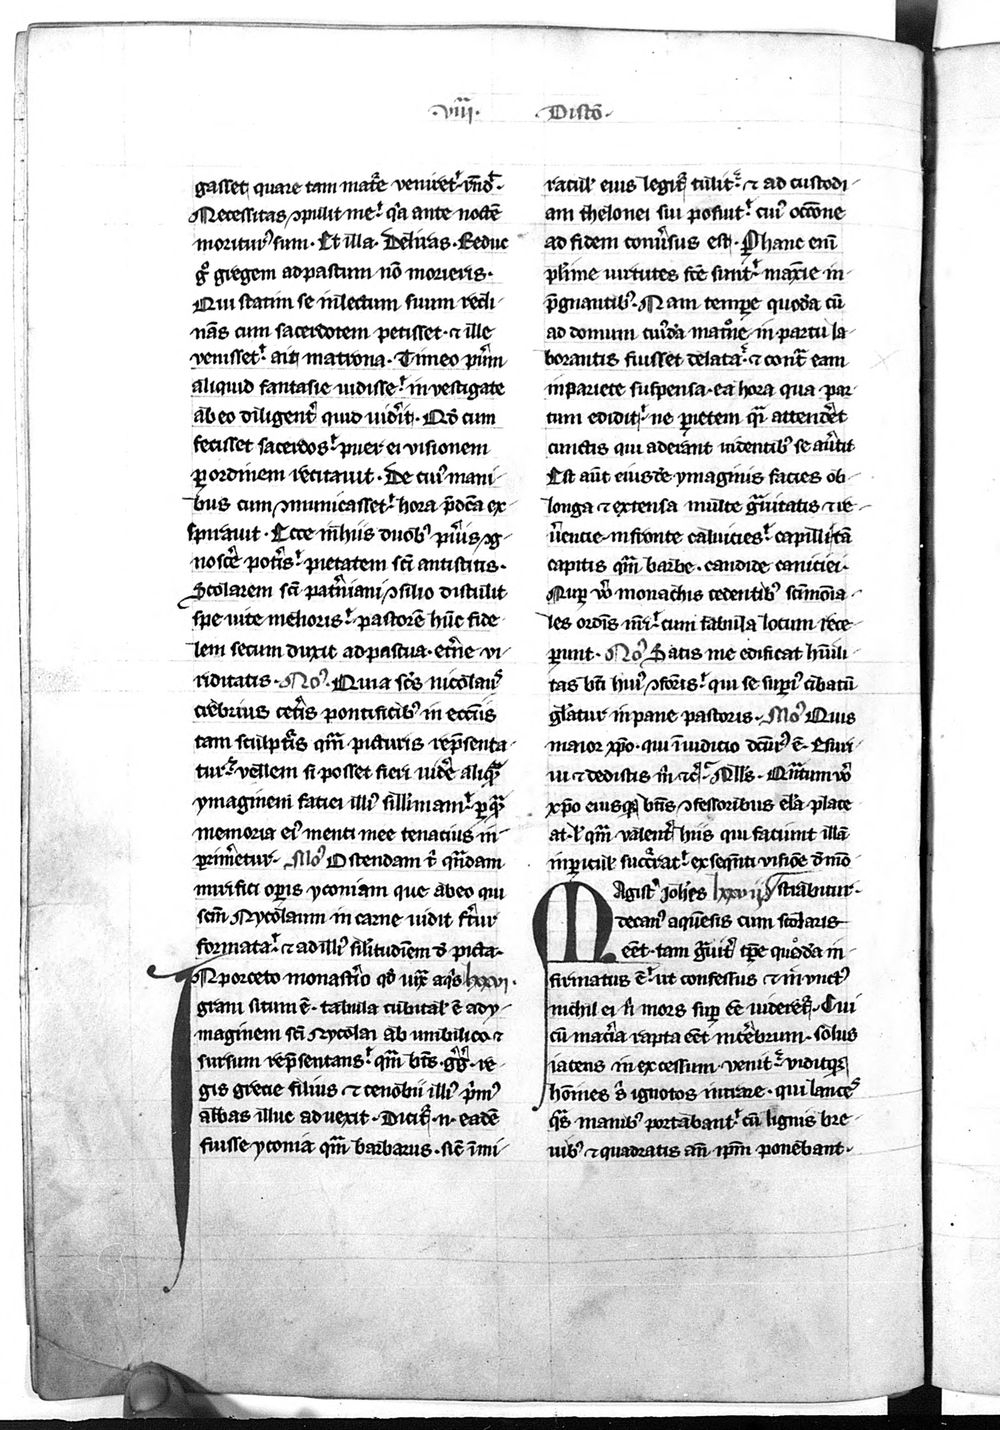 ·viii· Distco̅·
gasset quare tam mat̅e veniret· rn̅dʼ·
Necessitas ꝯpulit me· qʼa ante nocte̅
moriturꝰ sum· Et illa· Deliras· Reduc
gͦ gregem ad pastum no̅ morieris·
Qui statim se in lectum suum recli-
na̅s cum sacerdotem petisset· ⁊ ille
venisset· ait matrona· Timeo pʼrm
aliquid fantasie vidisse· investigate
ab eo diligentʼ quid videʼit· Qd̅ cum
fecisset sacerdos· puer ei visionem
ꝑ ordinem recitavit· De cuiꝰ mani-
bus cum ꝯmunicasset· hora p̅dc̅a ex-
spiravit· Ecce in hiis duobꝰ puʼis ꝯg-
nosceʼ potʼis· pietatem sc̅i antistitis·
Scolarem sc̅i patʼniani ꝯsilio distulit
spe vite melioris· pastore̅ hu̅c fide-
lem secum duxit ad pascua· etʼne vi-
riditatis· Noꝰ· Quia sc̅s nicolaꝰ
crebrius cetʼis pontificibꝰ in eccl̅iis
tam sculptʼis qm̅ picturis rep̅senta-
tur· vellem si posset fieri videʼ aliqm̅
ymaginem faciei illiꝰ sil̅limam· ꝑ qm̅
memoria eiꝰ menti mee tenacius in-
primeʼetur· Moꝰ Ostendam tʼ qm̅dam
mirifici opʼis yconiam que ab eo qui
scm̅ Nycolaum in carne vidit ferʼtur
formata· ⁊ ad illiꝰ silitudiem dʼ picta·
IN porceto monastʼio qd̅ vix aqʼs lxxvi·
grani situm e̅· tabula cubital̅ e̅ ad y-
maginem sc̅i Nycolai ab umbilico ⁊
sursum rep̅sentans· qm̅ bt̅s· gʼgʼ· re-
gis grecie filius ⁊ cenobii illiꝰ pʼmꝰ
abbas illuc advexit· Dicit̅· n· eade̅
fuisse yconia qm̅ barbarus· sic̅ i̅ mi-
racul̅ eius legit̅ tulit· ⁊ ad custodi-
am thelonei sui posuit· cuiꝰ occo̅ne
ad fidem convʼsus est· Ꝑ hanc eni̅
plʼime virtutes fc̅e sunt· maxi̅e in
p̅gnantibꝰ· Nam tempʼe quoda̅ cu̅
ad domum cuiʼda̅ matʼone in partu la-
borantis fuisset delata· ⁊ contʼ eam
in pariete suspensa· ea hora qua par-
tum edidit· ne pʼietem qʼi attendeʼet
cunctis qui aderant videntibꝰ se avʼtit
Est aut̅ eiusde̅ ymaginis facies ob-
longa ⁊ extensa multe gʼvitatis ⁊ re-
vʼencie· in fronte calvicies· capilli ta̅
capitis qm̅ barbe· candide caniciei·
Nuꝑ vʼo monachis cedentibꝰ sc̅imo̅ia-
les ordi̅s nr̅i· cum tabula locum rece-
ꝑunt· Noꝰ Satis me edificat hu̅ili-
tas bt̅i huiꝰ ꝯfess̅oris· qui se supʼi cu̅batu̅
gl̅atur in pane pastoris· Moꝰ Quis
maior xp̅o· qui i̅ iudicio dc̅urꝰ e̅· Esuri-
vi ⁊ dedistis m̅i ⁊c̅· Qn̅tum vʼo
xp̅o eiusqꝫ bt̅is ꝯfessoribus el̅a place-
at· l̅ qm̅ valent̅ hiis qui faciunt illa̅
in ꝑicul̅ succʼrat· ex seqn̅ti visio̅e dʼ mo̅-
MAgistʼ joh̅es lxxvii strabitur·
decanꝰ aquensis cum scolaris
eēt· tam gʼvitʼ tp̅e quoda̅ in-
firmatus e̅· ut confessus ⁊ in̅unctꝰ
nichil ei nʼ mors suꝑ e̅e videret̅· Cui
cu̅ mat̅ia rapta eēt in ceʼbrum· solus
iacens in excessum venit· viditqꝫ
ho̅ines sʼ ignotos intrare· qui lanceꝰ
qʼs manibꝰ portabant· cu̅ lignis bre-
vibꝰ ⁊ quadratis an̅ ipm̅ ponebant·